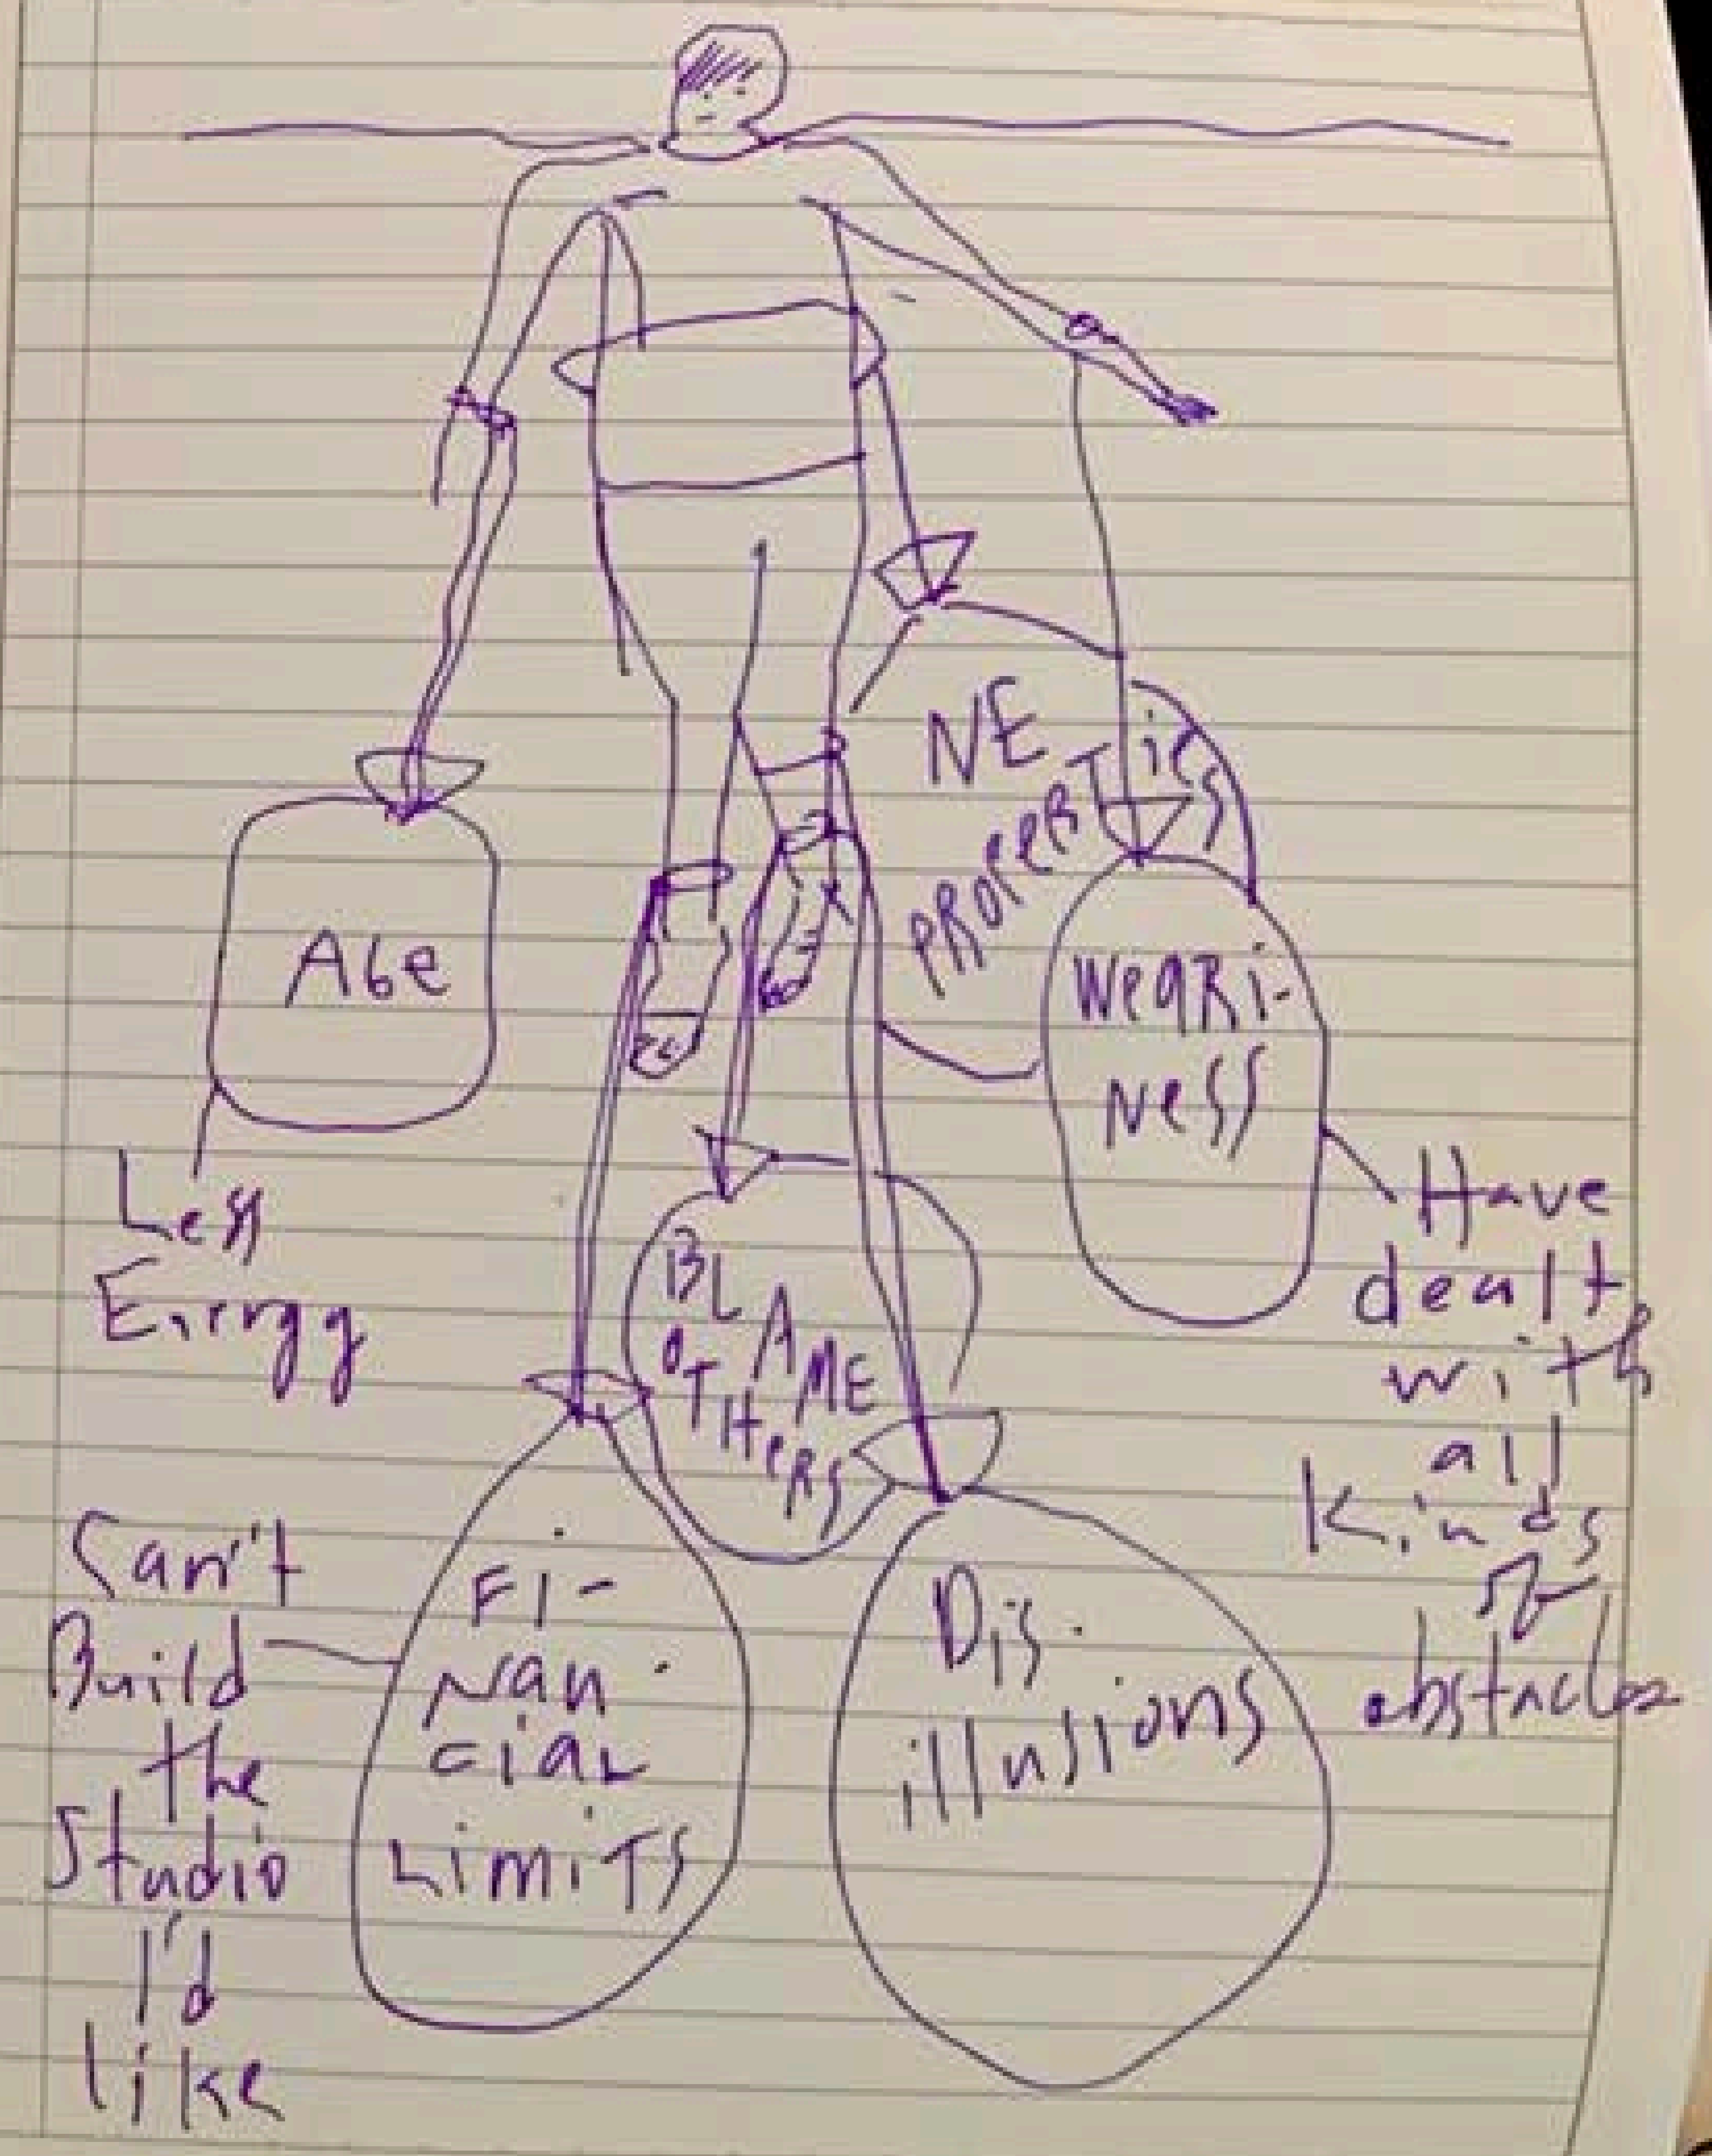 NE
PROPERTies
Age
WeaRi-
Ness
Less
Energy
Have
dealt
with
all
Kinds
of
obstacles
BLAME
OTHeRS
Can't
Build
the
Studio
I'd
like
Fi-
Nan-
ciaL
LimiTS
Dis-
illusions